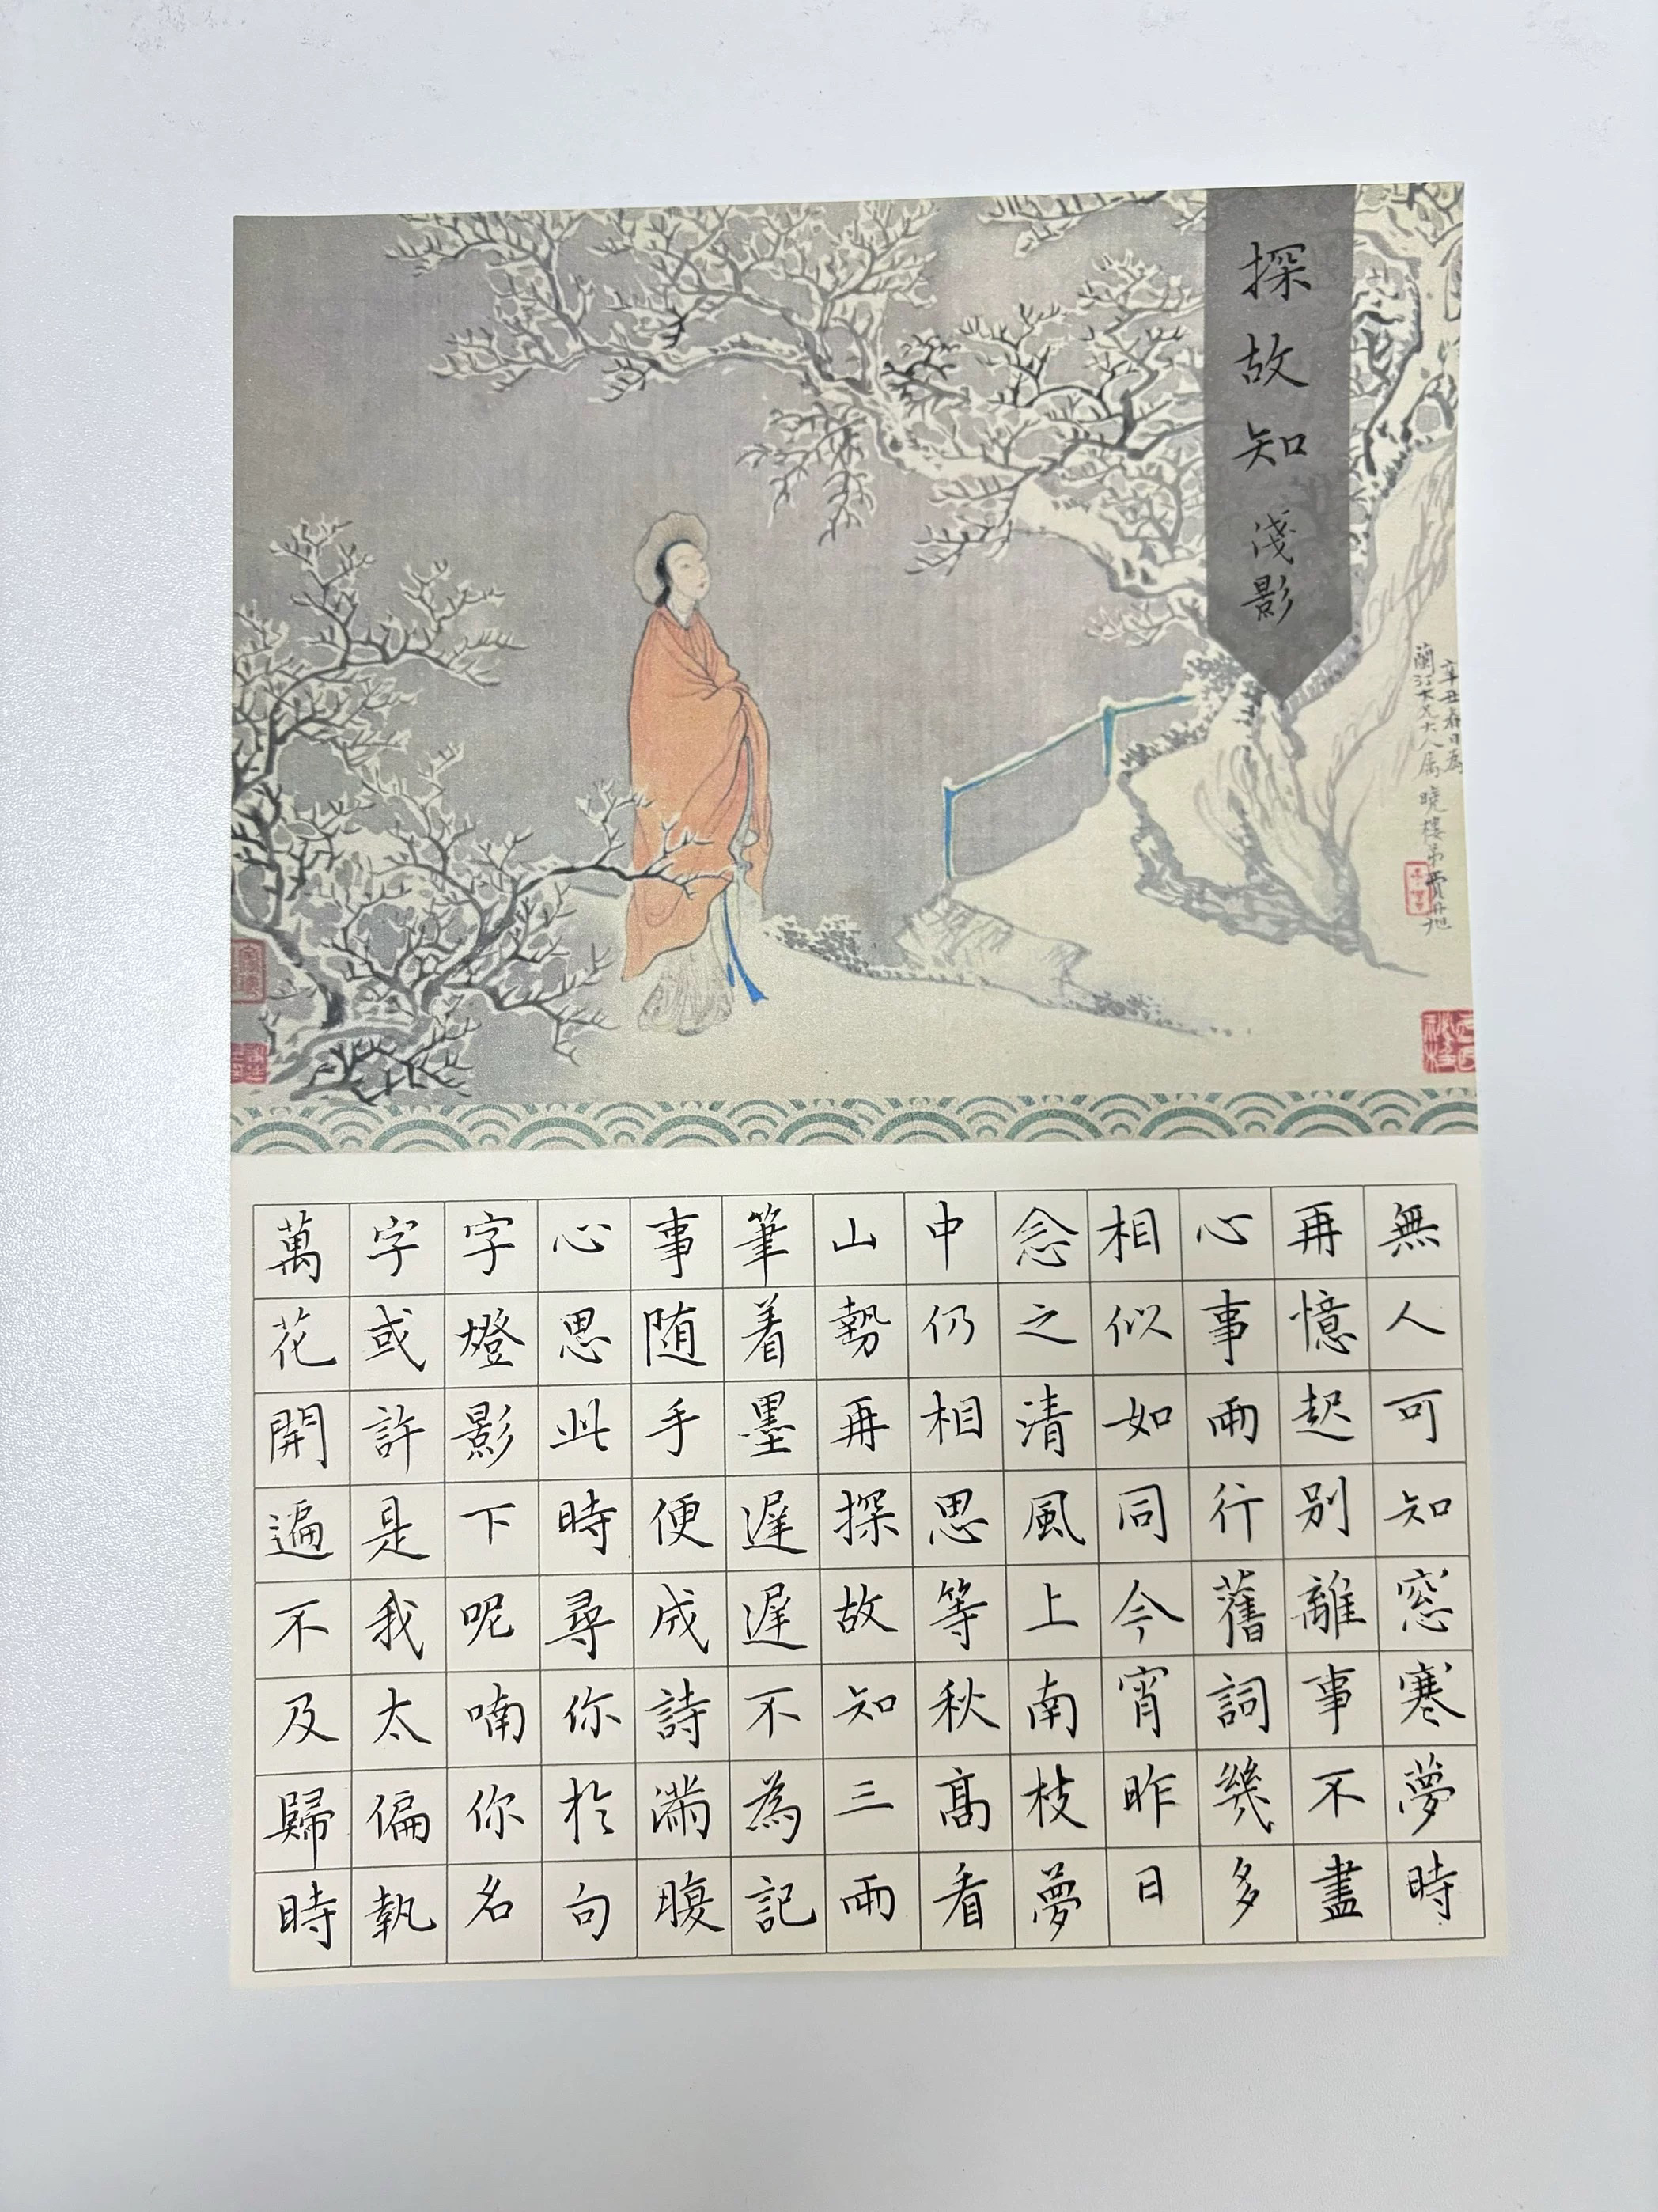 探故知 淺影
辛丑春日為
蘭江大人属 曉樓弟費丹旭
無人可知窓寒夢時
再憶起別離事不盡
心事兩行舊詞幾多
相似如同今宵昨日
念之清風上南枝夢
中仍相思等秋髙看
山勢再探故知三兩
筆着墨遲遲不為記
事随手便成詩滿腹
心思此時尋你於句
字燈影下呢喃你名
字或許是我太偏執
萬花開遍不及歸時